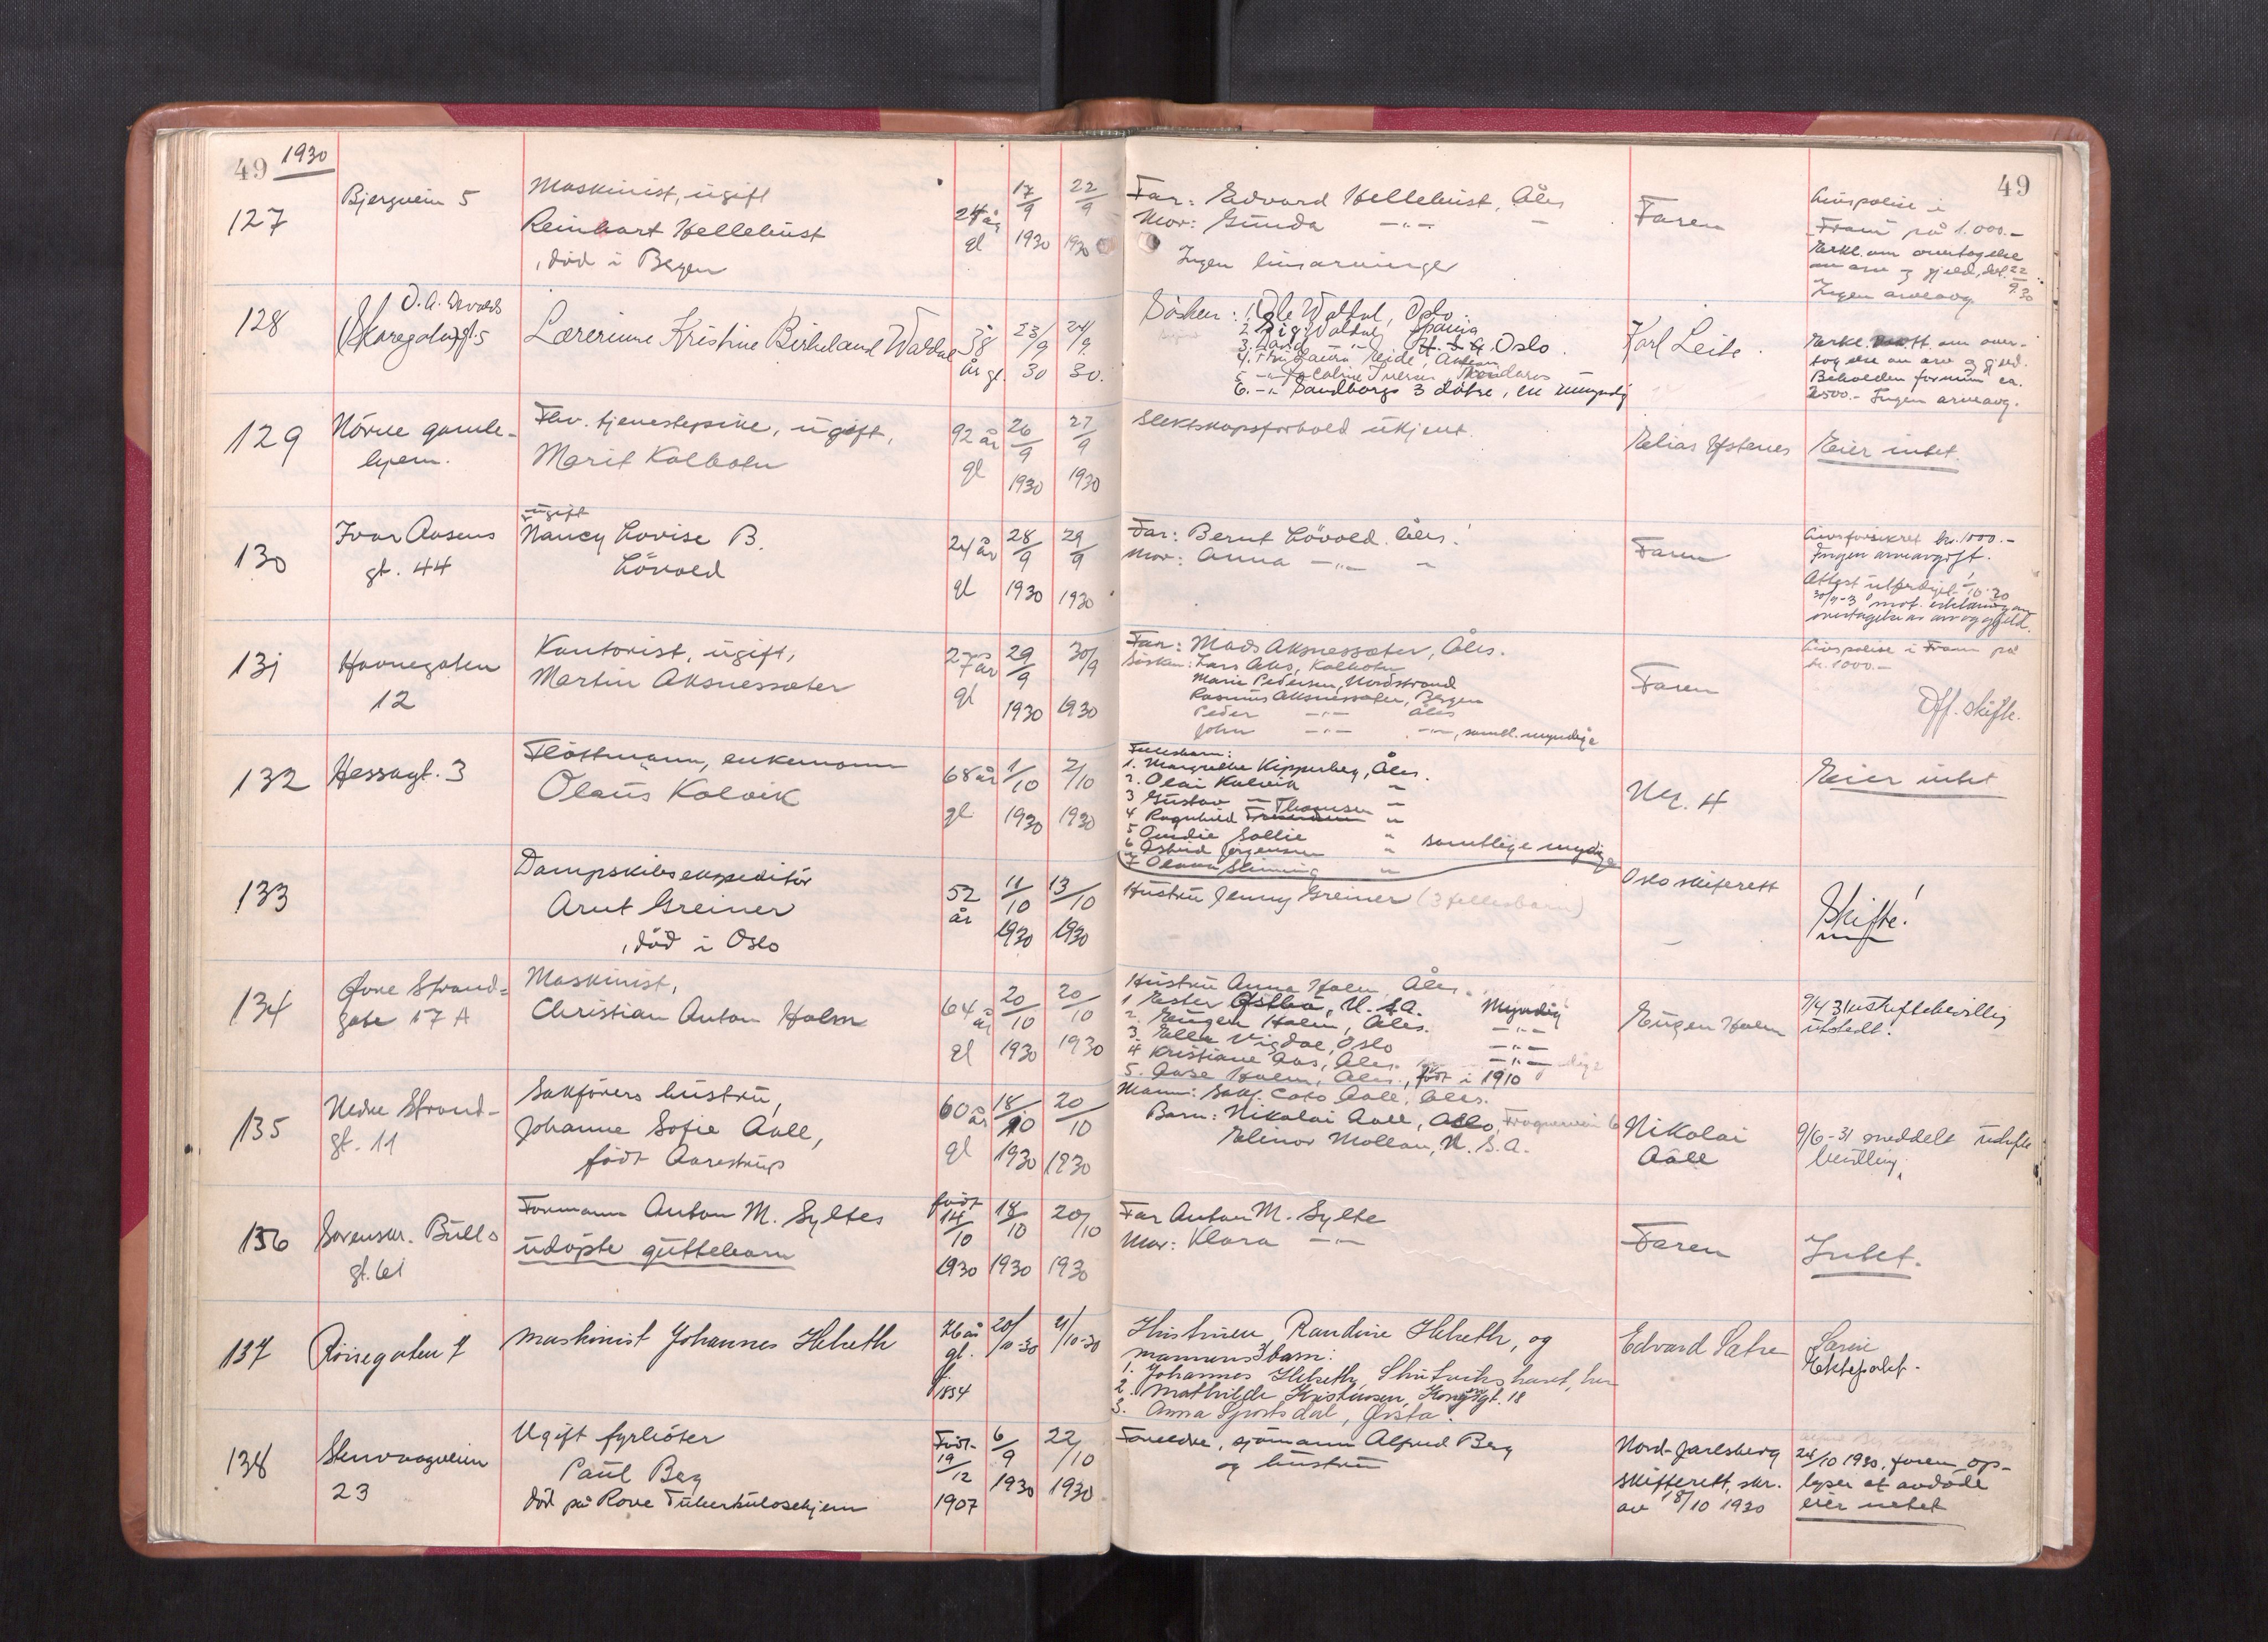 49 1930
49
127
Bjergvein 5
Maskinist, ugift
Reinhart Hellehust
, død i Bergen
24 år
gl
17/9
1930
22/9
1930
Far: Edvard Hellehust, Åles
Mor: Gunda -"- -
Ingen livsarvinger
Faren
Livspolise i
Fram på 1.000.-
Erkl. om overtagelse
av arv og gjeld, dat. 22
9.30
Ingen arveavg.
128
O. A. Devolds
(Skaregaten) gt. 5
Lærerinne Kristine Birkeland Waldal
38
år gl.
23/9
30
24/9.
30.
Søsken: 1. Ole Waldal, Oslo.
2. Sig. Waldal, Spania
3. David -"- U.S.A. Oslo.
4. Fru Laura Eide,
5 -"- Jacobine Iversen, Nidaros
6. -"- Sandborgs 3 døtre, en umyndig
Karl Leite.
Erkl. om over-
tagelse av arv og gjeld.
Beholden formue ca.
2500.- Ingen arveavg.
129
Nörve gamle-
hjem.
Fhv. tjenestepike, ugift,
Marit Kolbotn
92 år
gl
26/9
1930
27/9
1930
Slektskapsforhold ukjent.
Elias Ystenes
Eier intet.
130
Ivar Aasens
gt. 44
ugift
Nancy Lovise B.
Lövold
24 år
gl
28/9
1930
29/9
1930
Far: Bernt Lövold. Åles!
Mor: Anna -"- -
Faren
Livsforsikret kr. 1000.-
Ingen arveavgift.
Attest utferdiget 1/10-30
mot erklæring om
overtagelse av arv og gjeld.
131
Havnegaten
12
Kontorist, ugift,
Martin Aksnessæter
27 år
gl
29/9
1930
30/9
1930
Far: Mads Aksnessæter, Åles.
Søsken: Lars Aks, Kolbotn
Marie Pedersen, Nordstrand
Rasmus Aksnessæter, Bergen
Peder -"- Åles
John -"- -"-, samtl. myndige
Faren
Livspolise i Fram på
kr. 1000.-
Off. skifte.
132
Hessagt. 3
Fløttmann, enkemann
Olaus Kalvik
68 år
gl
1/10
1930
2/10
1930
Fellesbarn:
1. Margrethe Kipperberg, Åles.
2. Olai Kalvik "
3 Gustav -"- "
4 Ragnhild Thomsen "
5 Lundie Sollie "
6 Astrid Jørgensen " samtlige myndige
7 Olava Slinning "
Nr. 4
Eier intet
133
Dampskibsekspeditör
Arnt Greiner
, död i Oslo
52
år
11/10
1930
13/10
1930
Hustru Jenny Greiner (3 fellesbarn)
Oslo skifterett
Skifte!
134
Øvre Strand-
gate 17 A
Maskinist,
Christian Anton Holm
64 år
gl
20/10
1930
20/10
1930
Hustru Anna Holm, Åles.
1 Ester Østbø, U.S.A. Myndig
2. Eugen Holm, Åles. -"-
3. Ella Vigdal, Oslo -"-
4 Kristiane Aas, Åles. -"-
5. Aase Holm, Åles., født i 1910
Eugen Holm
9/4 31 uskiftebevilling
utstedt.
135
Nedre Strand-
gt. 11
Sakförers hustru,
Johanne Sofie Aall,
født Aarestrup
60 år
gl
18/10
1930
20/10
1930
Mann: Sakf. Cato Aall, Åles.
Barn: Nikolai Aall, Oslo, Frognerveien 6
Elinor Mollan, U.S.A.
Nikolai
Aall
9/6-31 meddelt uskifte
bevilling.
136
Sorenskr. Bulls
gt. 61
Formann Anton M. Syltes
udøpte guttebarn
født
14/10
1930
18/10
1930
20/10
1930
Far Anton M. Sylte
Mor: Klara -"-
Faren
Intet.
137
Rönnegaten 7
Maskinist Johannes Helseth
76 år
gl.
1854
20/10-30
21/10-30
Hustruen, Randine Helseth, og
mannens 3 barn:
1. Johannes Helseth, Skutvikshuset, her
2. Mathilde Kristensen, Kongensgt. 18
3. Anna Sjøstsdal, Ørsta.
Edvard Satre
Særeie
Ektepakt.
138
Stenvaagveien
23
Ugift fyrböter
Paul Berg
död på Rove Tuberkulosehjem
Født
19/12
1907
6/9
1930
22/10
1930
Foreldre, sjömann Alfred Berg
og hustru
Nord-Jarlsberg
skifterett, skr.
av 18/10 1930
24/10 1930, faren op-
lyser at avdøde
eier intet